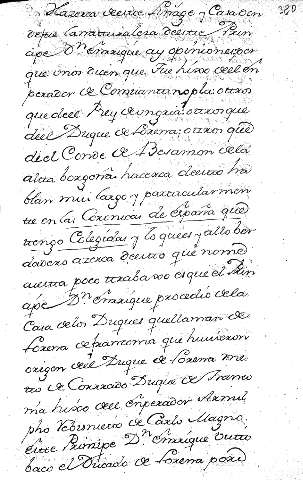 280
Hazerca deeste linage y Casa don
de fue la naturaleza deeste Prin
cipe Dn. Enrrique ay opiniones por
que unos dizen que fue hixo del en
perador de Constantinopla: otros
que del Rey de ungria: otros que
del Duque de Lorena; otros que
del Conde de Besanson de la
alta borgoña: hazerca deesto ha
blan mui largo y particularmen
te en las Coronicas de españa que
tengo Colegidas y lo que es y allo ber
dadero azerca deesto que no me
cuesta poco trabaxo es que el Prin
cipe Dn. Enrrique prozedio de la
Casa de los Duques que llaman de
Lorena de Francia que huvieron
origen del Duque de Lorena
de Conrrado Duque de
hixo del enperador Arnul
pho de Carlo Magno
este Prinzipe Dn. Enrrique
el Ducado de Lorena